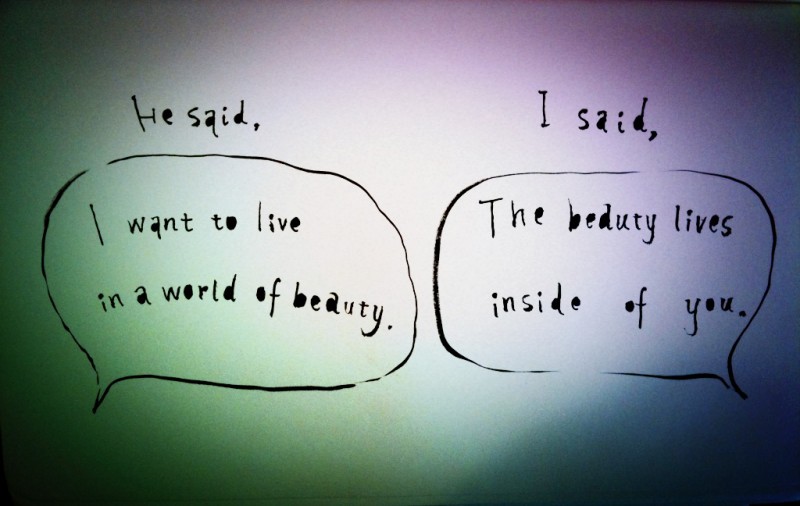 He said,
I want to live
in a world of beauty.
I said,
The beauty lives
inside of you.